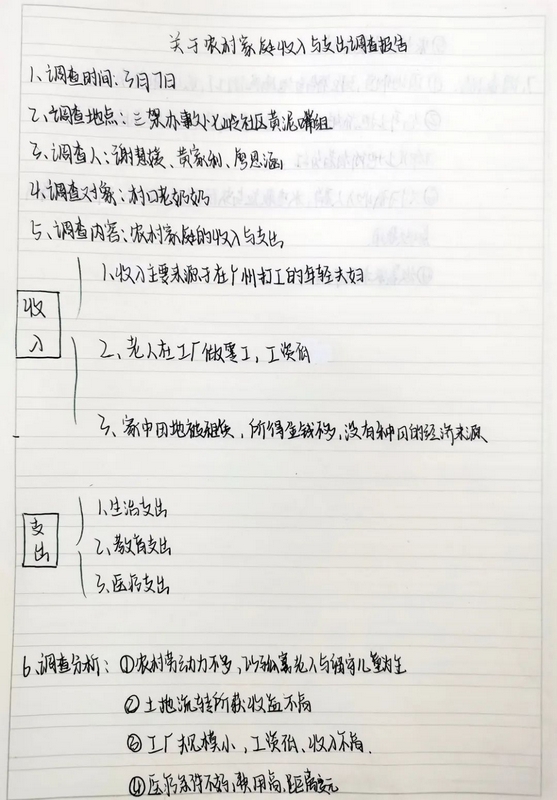 关于农村家庭收入与支出调查报告
1、调查时间:3月7日
2、调查地点:三架办事处 社区黄泥嘴组
3、调查人:谢慧媛、黄家利、 恩涵
4、调查对象:村口老奶奶
5、调查内容:农村家庭的收入与支出
1、收入主要来源于在广州打工的年轻夫妇
收入
2、老人在工厂做零工,工资低
3、家中田地被租 ,所得金钱不多,没有种田的经济来源
1、生活支出
支出
2、教育支出
3、医疗支出
6、调查分析:①农村劳动力不多,以孤寡老人与留守儿童为主
②土地流转所获收益不高
③工厂规模小、工资低、收入不高.
④医疗条件不好,费用高,距离远